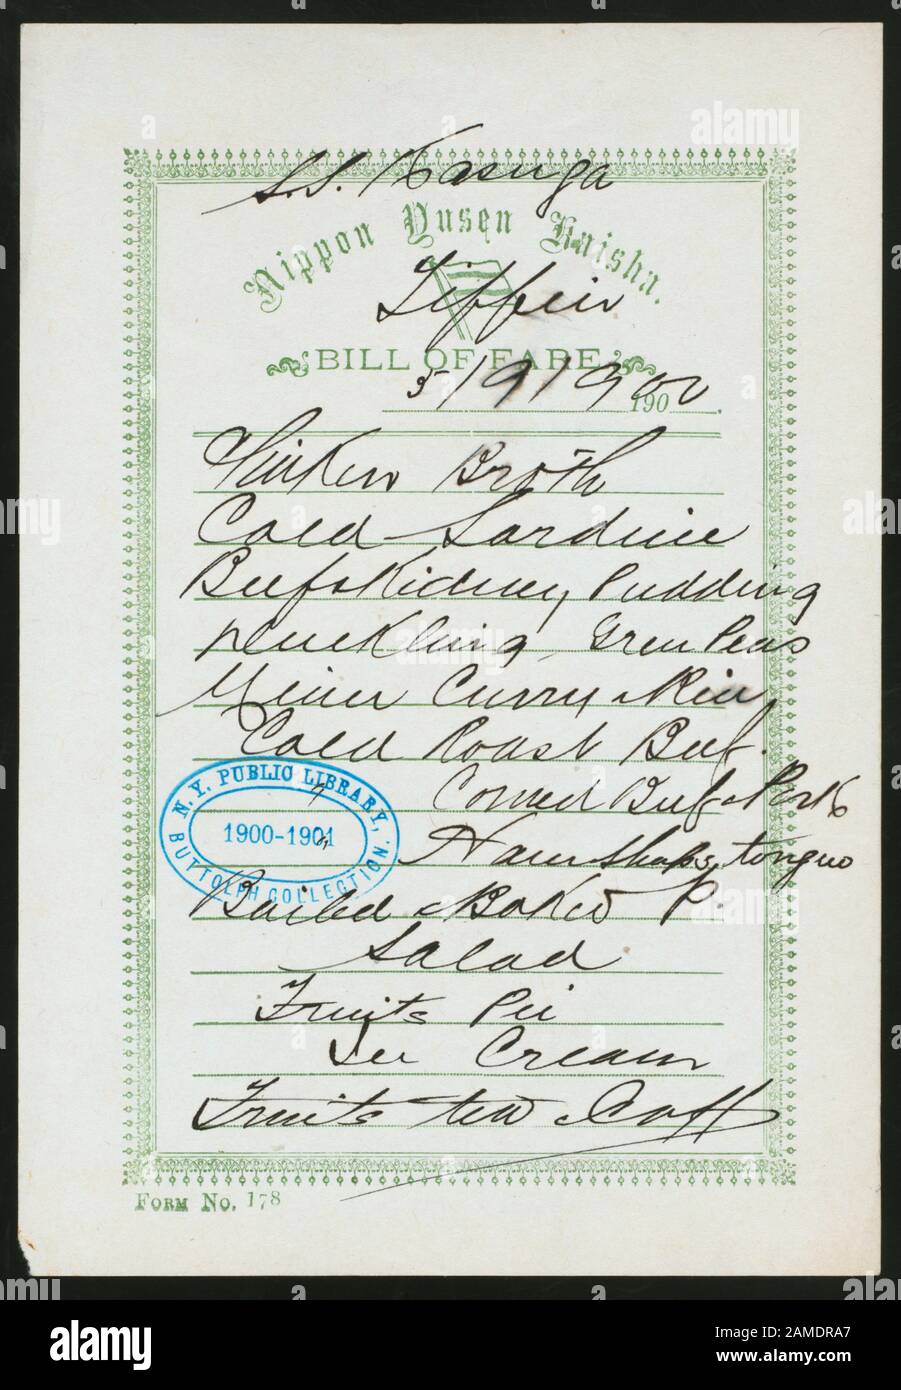 S.S. Kasuga
Nippon Yusen Kaisha.
Tiffin
BILL OF FARE
5/9/1900
1900
Chicken Broth
Cold Sardine
Beef & Kidney Pudding
Duckling, Green Peas
Curry & Rice
Cold Roast Beef.
" Corned Beef & Pork
" Ham Shaps, tongue
Boiled & Baked P.
Salad
Fruits Pie
Ice Cream
Fruits tea & Coff
N.Y. PUBLIC LIBRARY,
1900-1901
BUTTOLPH COLLECTION.
FORM No. 178
alamy
alamy
Image ID: 2AMDRA7
www.alamy.com